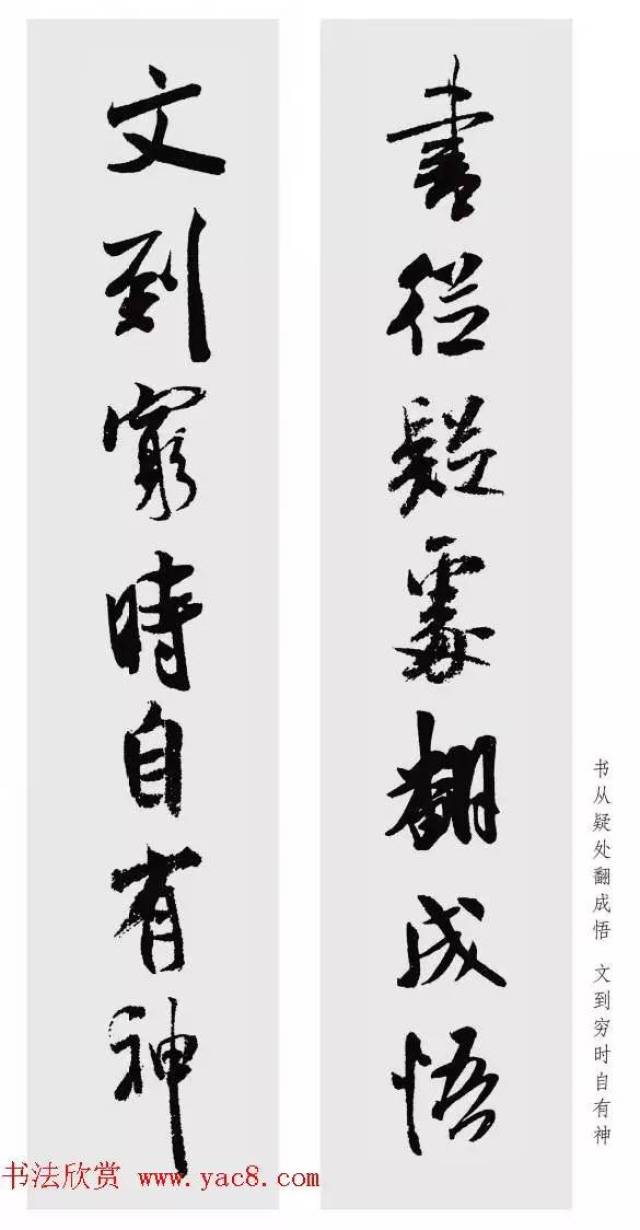 書從疑處翻成悟
文到窮時自有神
书从疑处翻成悟 文到穷时自有神
书法欣赏 www.yac8.com